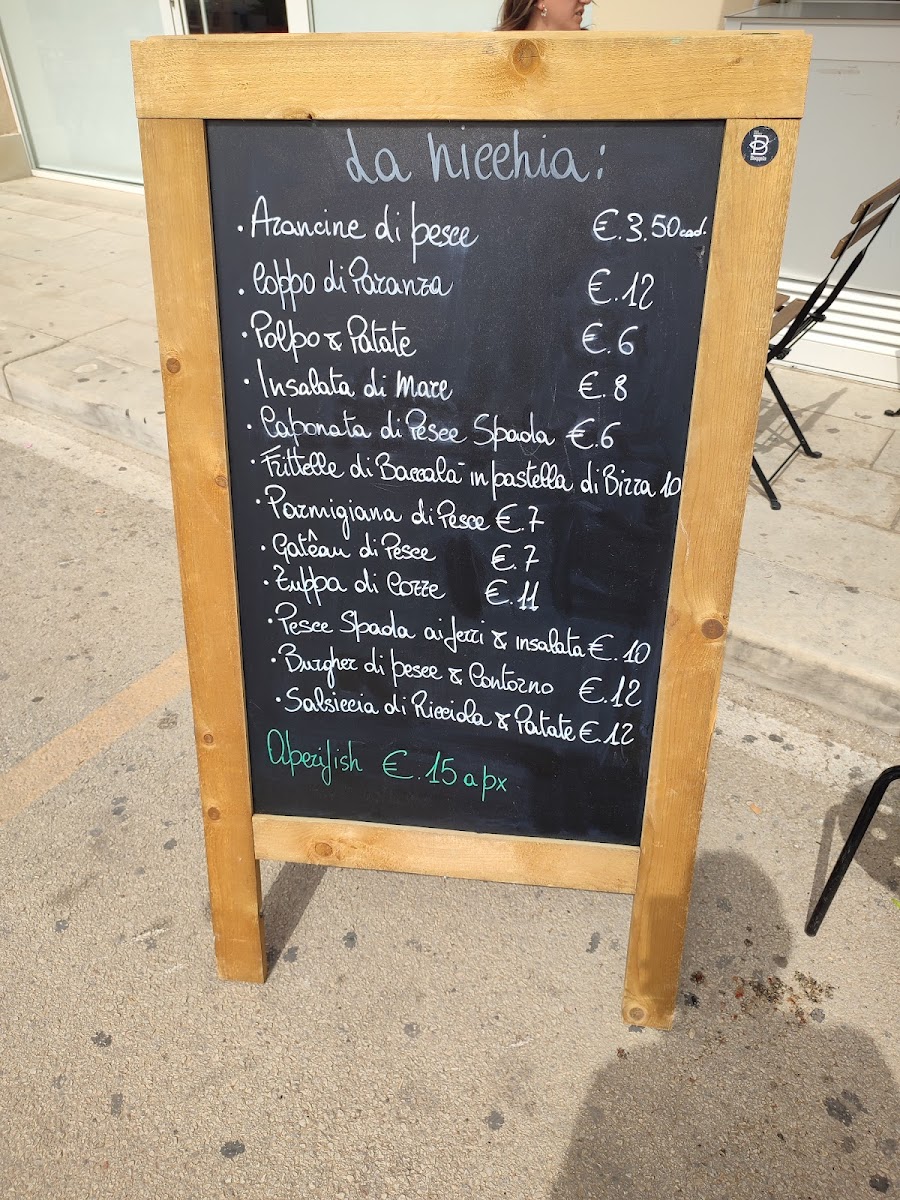 La Nicchia:
· Arancine di pesce €.3.50 cad.
· Coppo di Paranza €.12
· Polpo & Patate €.6
· Insalata di Mare €.8
· Caponata di Pesce Spada €.6
· Frittelle di Baccalà in pastella di Birra 10
· Parmigiana di Pesce €.7
· Gatêau di Pesce €.7
· Zuppa di Cozze €.11
· Pesce Spada ai ferri & insalata €.10
· Burgher di pesce & Contorno €.12
· Salsiccia di Ricciola & Patate €.12
Aperifish €.15 a px